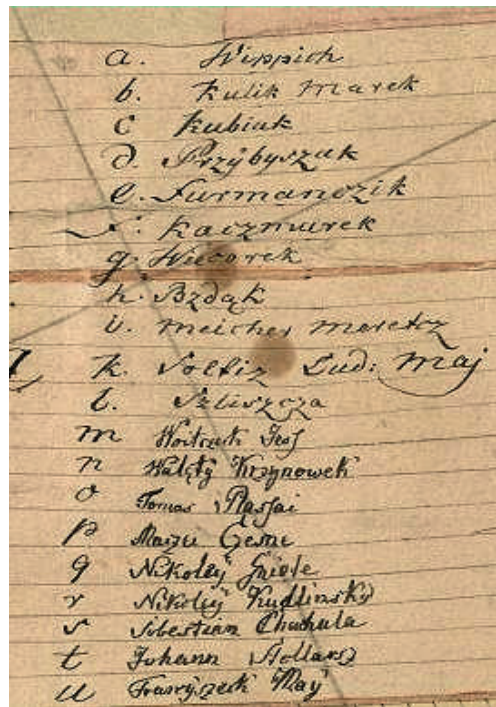 a. Wippich
b. Kulik Marek
c Kubiak
d. Przybyszak
e. Furmanczik
f. Kaczmurek
g. Wieсorek
h. Bzdąk
i. meicher
k. Soltiz Lud: Maj
l. Szliszcza
m
n Walęty Krzynowek
o Tomas
p
q Nikoleÿ Gniele
r Nikoleÿ Kudlinskÿ
s Sebestian Chachula
t Johann Stollarz
u Franÿszeck Maÿ